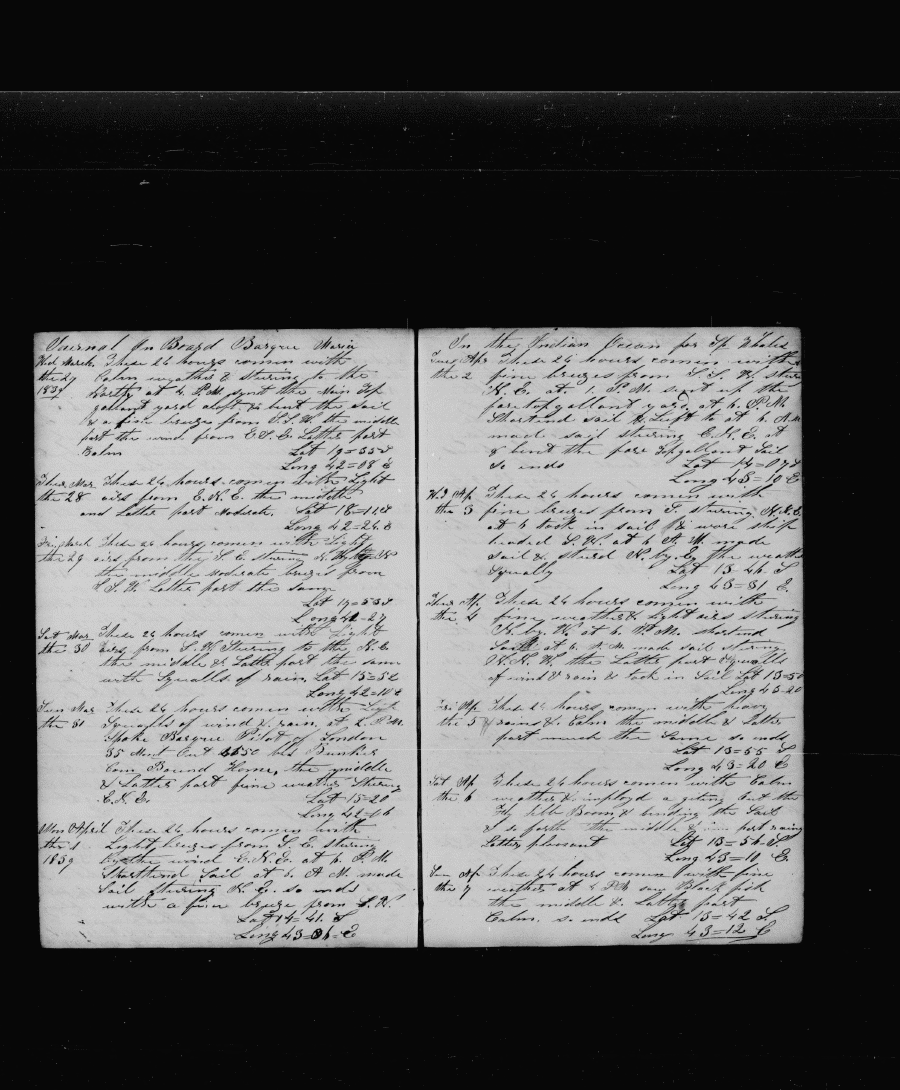 Journal On Board Barque Maria
Wed March These 24 hours comen with
the 27 Calm weather & stering to the
1839 North at 4 P.M. sent the Main Top
gallant yard aloft & bent the sail
& a fine breeze from S.S.W. the middle
part the wind from E.S.E. Latter part
Calm Lat 19=55 S
Long 42=08 E
Thur Mar These 24 hours comen with Light
the 28 airs from E.N.E. the middle
and Latter part Lat 18=11 S
Long 42=24 E
Fri March These 24 hours comen with Light
the 29 airs from the S.E. stering
the middle moderate breezes from
S.S.W. Latter part the same
Lat 17=53 S
Long 42=27
Sat Mar These 24 hours comen with Light
the 30 airs from S.W. Stering to the N.E.
the middle & Latter part the same
with Squalls of rain Lat 15=52
Long 42=10 E
Sun Mar These 24 hours comen with Light
the 31 Squalls of wind & rain at 2 P.M.
Spoke Barque Pilot of London
35 Mont Out 1550 bls
Bound Home, the middle
& Latter part fine weather Stering
E.N.E. Lat 15=20
Long 42=46
Mon April These 24 hours comen with
the 1 Light breezes from S.E. stering
1839 by the wind E.N.E. at 6 P.M.
Shorthend Sail at 6 A.M. made
Sail Stering N.E. so ends
with a fine breeze from S.W.
Lat 14=41 S
Long 43=06 E
In the Indian Ocean for Sp Whales
Tues Apr These 24 hours comen with
the 2 fine breezes from S.S.
N.E. at 1 P.M. sent up the
foretopgallant yard at 6 P.M.
Shortend sail & Luft to at 6 A.M.
made sail stering E.N.E. at
8 bent the fore topgallant Sail
so ends Lat 14=07 S
Long 43=10 E
Wed Ap These 24 hours comen with
the 3 fine breezes from S. stering N.N.E.
at 6 took in sail & wore ship
headed S.W. at 6 A.M. made
sail & sterd N. by E. the weather
Squally Lat 13=46 S
Long 43=31 E.
Thur Ap These 24 hours comen with
the 4 fine weather & Light airs stering
N. by W. at 6 P.M. shortend
Sail at 6 A.M. made sail stering
the Latter part Squalls
of wind & rain & took in Sail Lat 13=50
Long 43=20
Fri Ap These 24 hours comen with heavy
the 5 rains & Calm the middle & Latter
part much the Same so ends
Lat 13=55 S
Long 43=20 E
Sat Ap These 24 hours comen with Calm
the 6 weather & imployd a geting Out the
Fly Jibb Boom & bending the Sail
& so forth the middle part rainy
Latter pleasant Lat 13=54 S
Long 43=10 E.
Sun Ap These 24 hours comen with fine
the 7 weather at 4 P.M. saw Black fish
the middle & Latter part
Calm. so ends Lat 13=42 S
Long 43=12 E